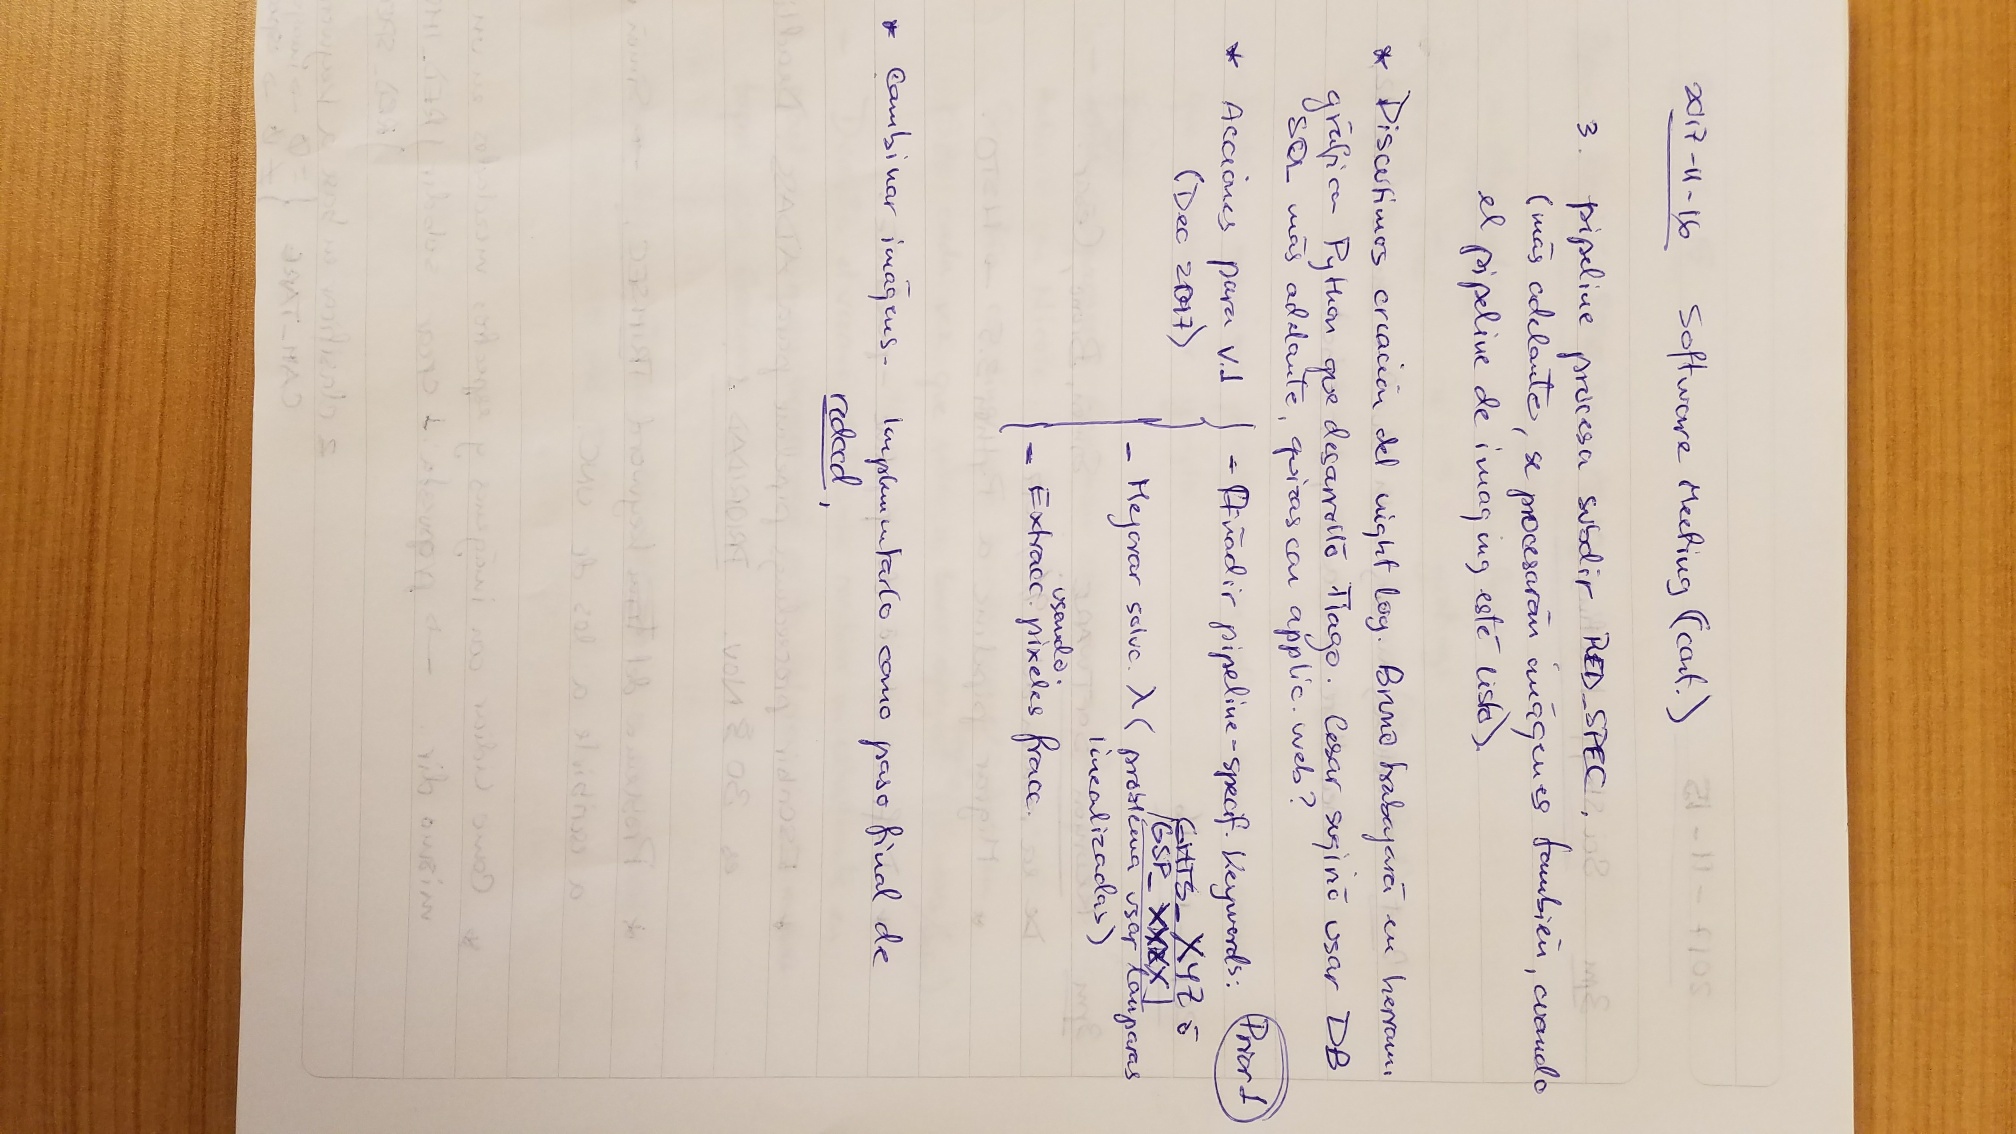 2017-11-16 Software Meeting (cont.)
3. pipeline procesa subdir RED_SPEC.
(más adelante, se procesarán imágenes también, cuando
el pipeline de imaging esté listo).
* Discutimos creación del night log. Bruno trabajará en herram.
gráfica Python que desarrolló Tiago. Cesar sugirió usar DB
SQL más adelante, quizás con applic. web?
* Acciones para v.1
(Dec 2017)
- Añadir pipeline-specif. Keywords: Prior 1
GHTS_XYZ ó
GSP_XXXX
- Mejorar soluc. λ (problema usar lámparas
linealizadas)
usando:
- Extracc. pixeles fracc.
* Combinar imágenes - Implementarlo como paso final de
redccd.